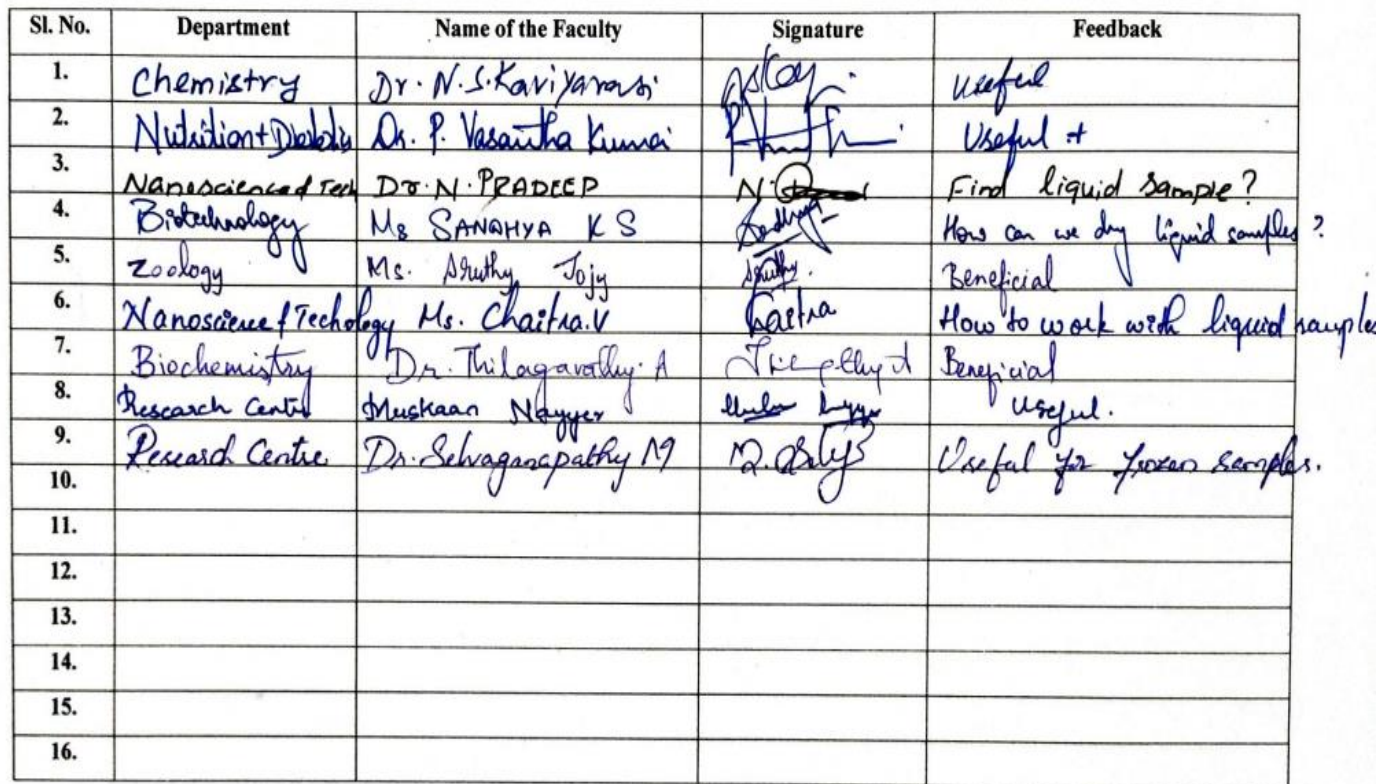 Sl. No. Department Name of the Faculty Signature Feedback
1. Chemistry Dr. N.S. Kaviyarasi Useful
2. Nutrition + Dr. P. Vasantha Kumari Useful +
3. Nanoscience & Tech Dr. N. PRADEEP N. Find liquid sample?
4. Biotechnology Ms SANDHYA K S Sandhya How can we dry liquid samples?
5. Zoology Ms. Sruthy Jojy Sruthy. Beneficial
6. Nanoscience & Techology Ms. Chaitra.V Chaitra How to work with liquid samples
7. Biochemistry Dr. Thilagavathy. A Beneficial
8. Research Centre Muskaan Nayyer Useful.
9. Research Centre Dr. Selvaganapathy M Useful for frozen samples.
10.
11.
12.
13.
14.
15.
16.